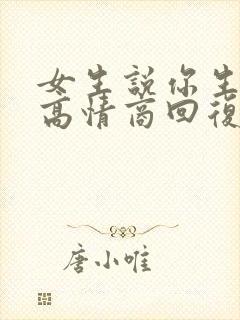 女生說你生
高情商回復
唐小唯